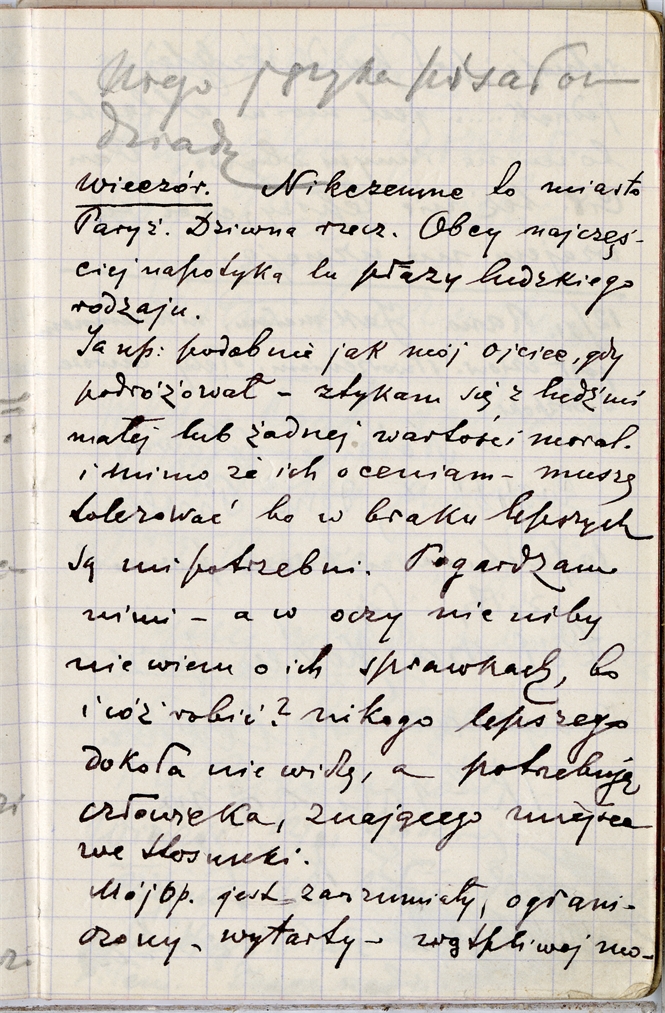 języka pisałam
dziady
wieczór. Nikczemne to miasto
Paryż. Dziwna rzecz. Obcy najczęś-
ciej napotyka tu płazy ludzkiego
rodzaju.
Ja np: podobnie jak mój ojciec, gdy
podróżował – stykam się z ludźmi
małej lub żadnej wartości moral.
i mimo że ich oceniam – muszę
tolerować bo w braku lepszych
są mi potrzebni. Pogardzam
nimi – a w oczy nic niby
nie wiem o ich sprawkach, bo
i cóż robić? nikogo lepszego
dokoła nie widzę, a potrzebuję
człowieka, znającego miejscowe
stosunki.
Mój Op. jest zarozumiały, ograni-
czony – wytarty – wątpliwej mo-